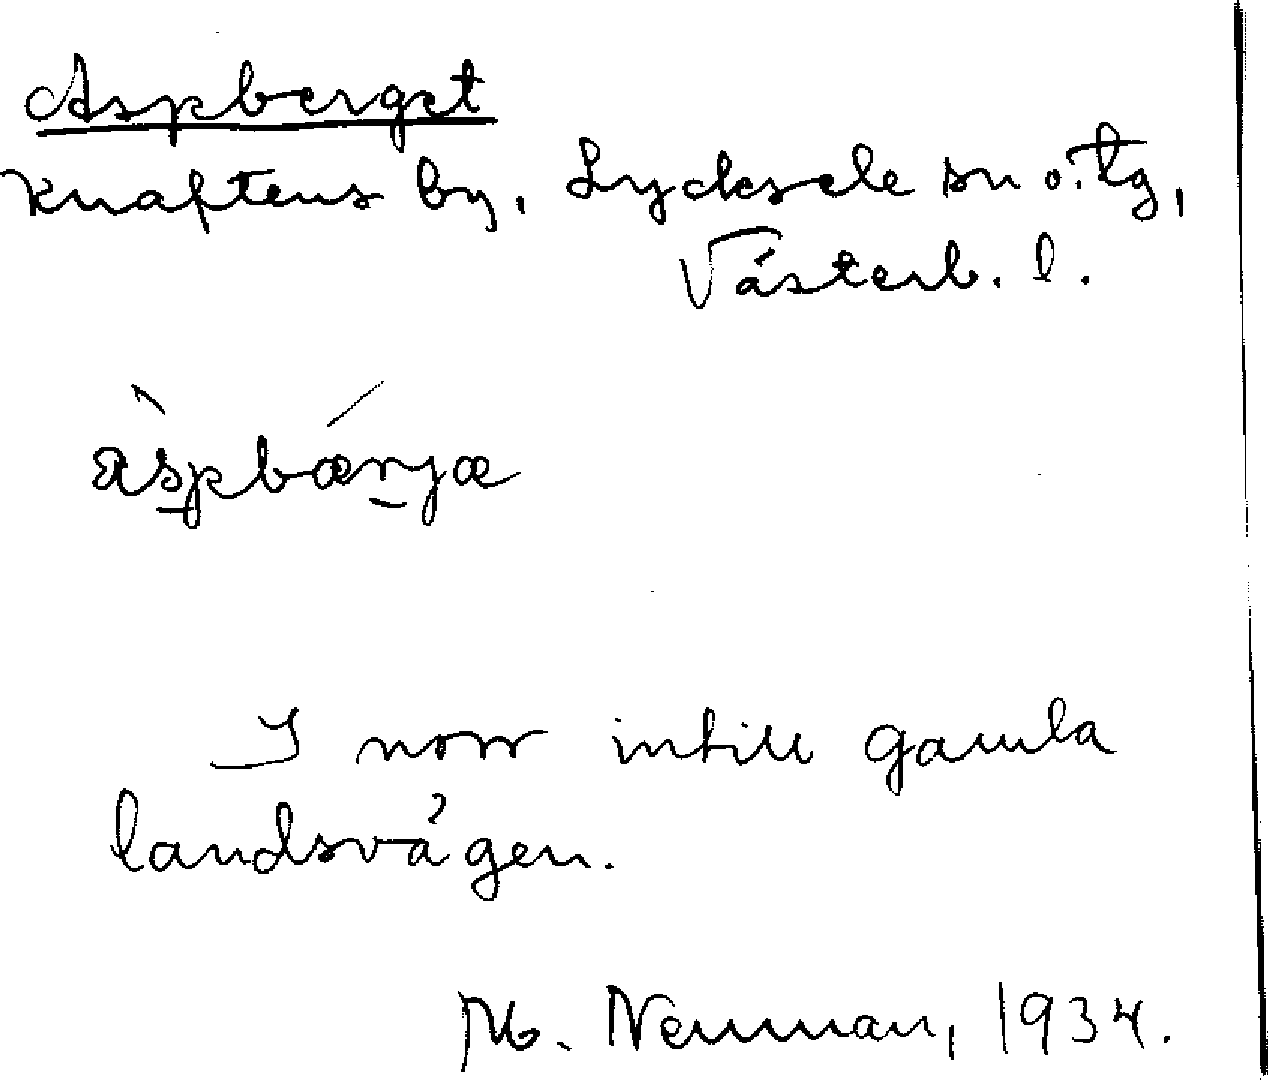 Aspberget
Knaftens by, Lycksele sn o. tg,
Västerb. l.
àspbǽrjæ
I norr intill gamla
landsvägen.
Neuman, 1934.